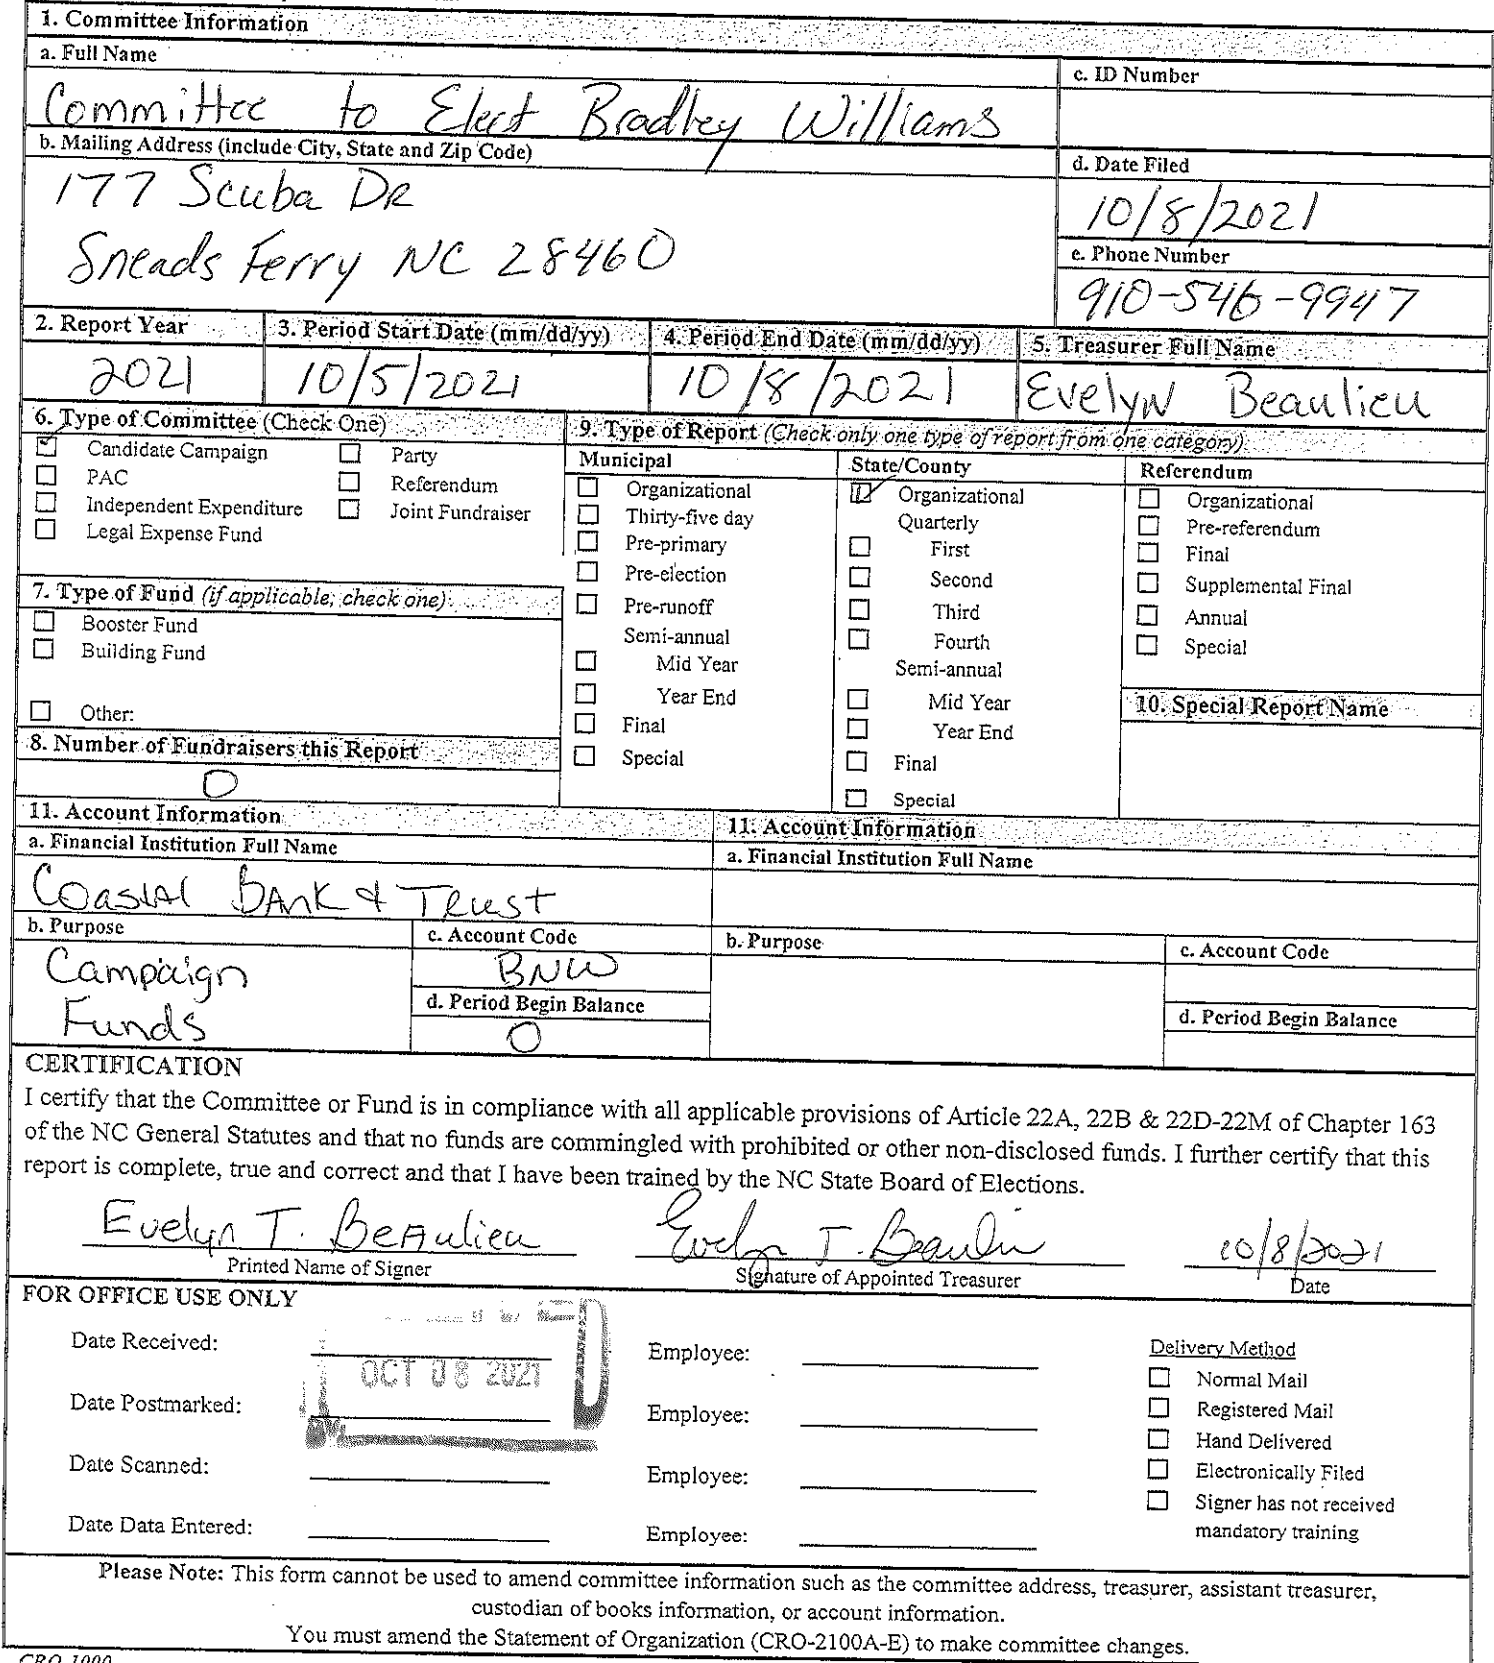 1. Committee Information
a. Full Name
Committee to Elect Bradley Williams
c. ID Number
b. Mailing Address (include City, State and Zip Code)
177 Scuba DR
Sneads Ferry NC 28460
d. Date Filed
10/8/2021
e. Phone Number
910-546-9947
2. Report Year
2021
3. Period Start Date (mm/dd/yy)
10/5/2021
4. Period End Date (mm/dd/yy)
10/8/2021
5. Treasurer Full Name
Evelyn Beaulieu
6. Type of Committee (Check One)
Candidate Campaign
PAC
Independent Expenditure
Legal Expense Fund
Party
Referendum
Joint Fundraiser
7. Type of Fund (if applicable, check one)
Booster Fund
Building Fund
Other:
8. Number of Fundraisers this Report
0
9. Type of Report (Check only one type of report from one category)
Municipal
Organizational
Thirty-five day
Pre-primary
Pre-election
Pre-runoff
Semi-annual
Mid Year
Year End
Final
Special
State/County
Organizational
Quarterly
First
Second
Third
Fourth
Semi-annual
Mid Year
Year End
Final
Special
Referendum
Organizational
Pre-referendum
Final
Supplemental Final
Annual
Special
10. Special Report Name
11. Account Information
a. Financial Institution Full Name
Coastal Bank & Trust
b. Purpose
Campaign
Funds
c. Account Code
BNW
d. Period Begin Balance
0
11. Account Information
a. Financial Institution Full Name
b. Purpose
c. Account Code
d. Period Begin Balance
CERTIFICATION
I certify that the Committee or Fund is in compliance with all applicable provisions of Article 22A, 22B & 22D-22M of Chapter 163
of the NC General Statutes and that no funds are commingled with prohibited or other non-disclosed funds. I further certify that this
report is complete, true and correct and that I have been trained by the NC State Board of Elections.
Evelyn T. Beaulieu
Printed Name of Signer
Evelyn T. Beaulieu
Signature of Appointed Treasurer
10/8/2021
Date
FOR OFFICE USE ONLY
Date Received:
OCT 08 2021
Date Postmarked:
Date Scanned:
Date Data Entered:
Employee:
Employee:
Employee:
Employee:
Delivery Method
Normal Mail
Registered Mail
Hand Delivered
Electronically Filed
Signer has not received
mandatory training
Please Note: This form cannot be used to amend committee information such as the committee address, treasurer, assistant treasurer,
custodian of books information, or account information.
You must amend the Statement of Organization (CRO-2100A-E) to make committee changes.
CRO-1000